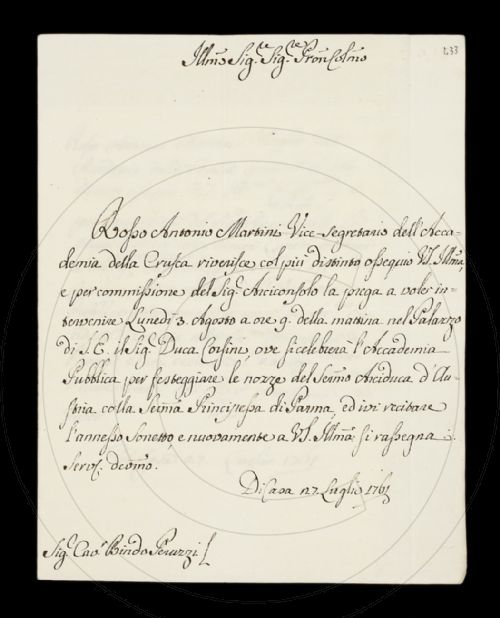 133
Illmo Sig.re Sig.re Pron Colmo
Rosso Antonio Martini Vice-Segretario dell'Acca-
demia della Crusca riverisce col piu distinto ossequio V.S. Illma,
e per commissione del Sig.r Arciconsolo la prega a voler in=
tervenire Lunedi 3. Agosto a ore 9. della mattina nel Palazzo
di S. E. il Sig.r Duca Corsini, ove si celebrerà l'Accademia
Pubblica per festeggiare le nozze del Sermo Arciduca d'Au-
stria colla Serma Principessa di Parma, ed ivi recitare
l'annesso Sonetto, e nuovamente a V.S. Illma si rassegna
Serv.r devmo.
Di Casa 27. Luglio 1761
Sig.r Cav.r Bindo Peruzzi